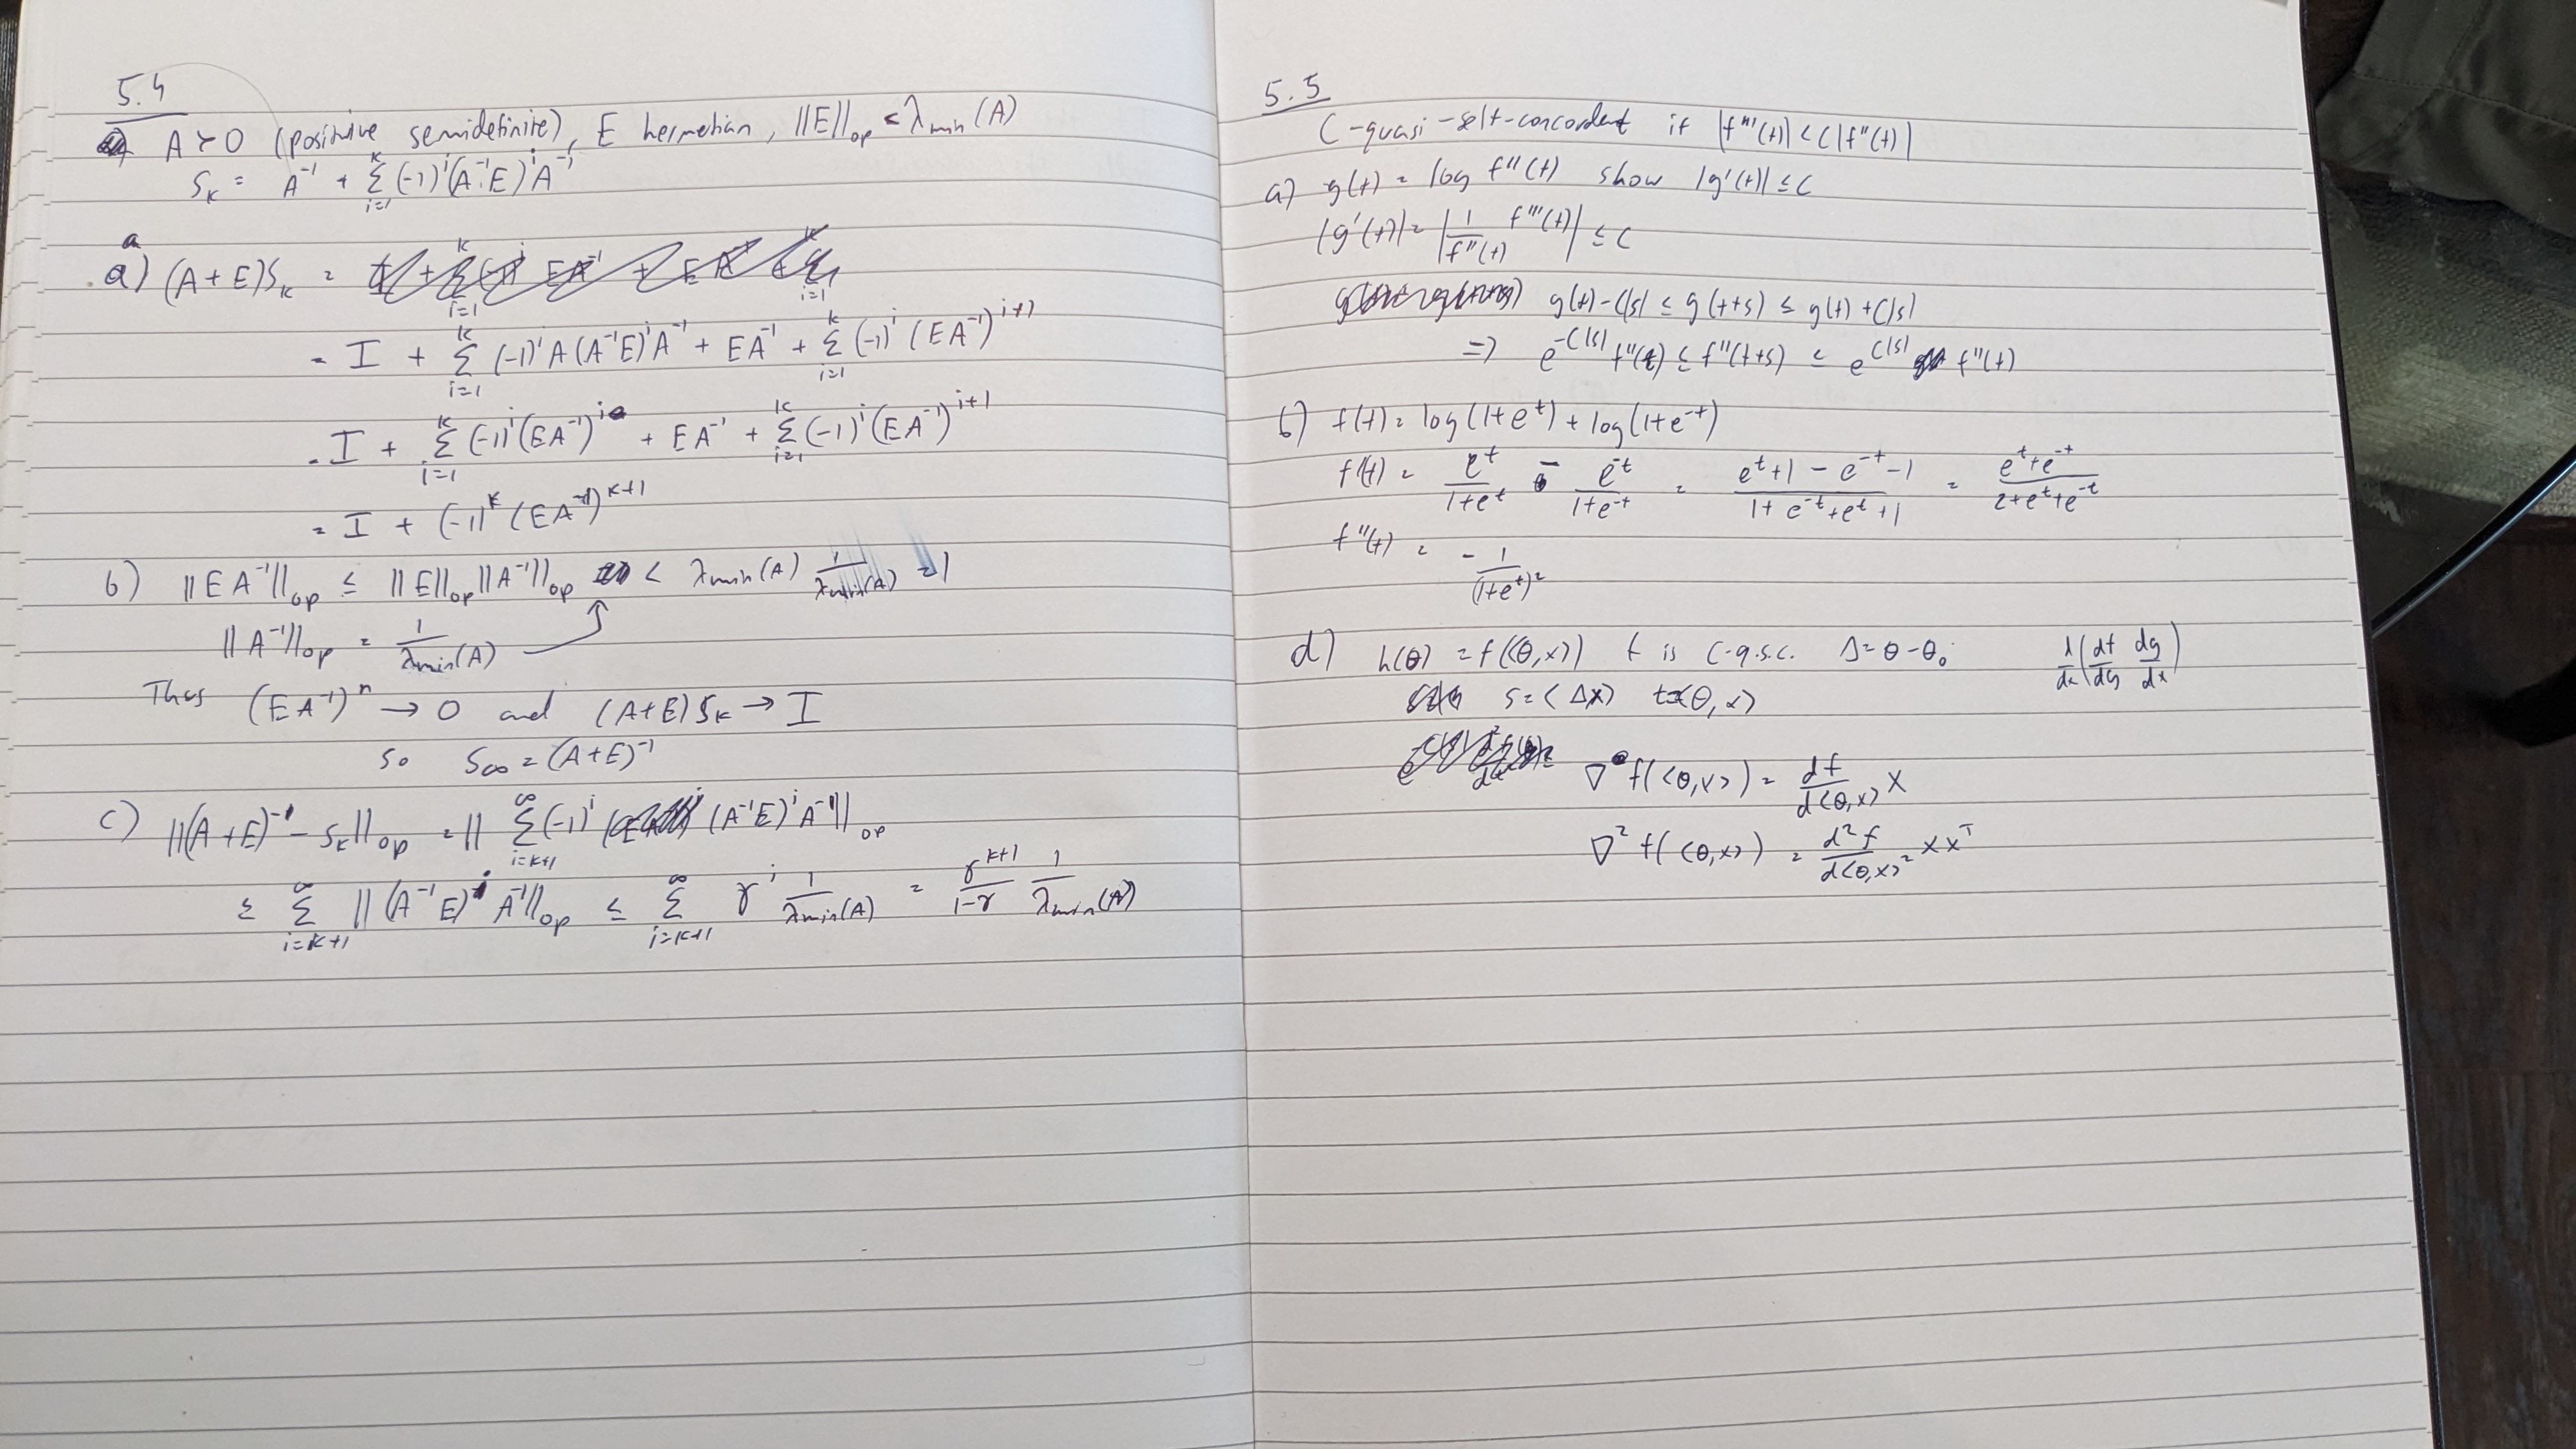 5.4
A ≻ 0 (positive semidefinite), E hermetian, ||E||_op < λ_min(A)
S_k = A^-1 + Σ_{i=1}^k (-1)^i (A^-1 E)^i A^-1
a) (A+E)S_k =
= I + Σ_{i=1}^k (-1)^i A(A^-1 E)^i A^-1 + EA^-1 + Σ_{i=1}^k (-1)^i (EA^-1)^{i+1}
= I + Σ_{i=1}^k (-1)^i (EA^-1)^i + EA^-1 + Σ_{i=1}^k (-1)^i (EA^-1)^{i+1}
= I + (-1)^k (EA^-1)^{k+1}
b) ||EA^-1||_op ≤ ||E||_op ||A^-1||_op < λ_min(A) 1/λ_min(A) = 1
||A^-1||_op = 1/λ_min(A)
Thus (EA^-1)^n → 0 and (A+E)S_k → I
so S_∞ = (A+E)^-1
c) ||(A+E)^-1 - S_k||_op = || Σ_{i=k+1}^∞ (-1)^i (A^-1 E)^i A^-1 ||_op
≤ Σ_{i=k+1}^∞ ||(A^-1 E)^i A^-1||_op ≤ Σ_{i=k+1}^∞ γ^i 1/λ_min(A) = γ^{k+1}/(1-γ) 1/λ_min(A)
5.5
C-quasi-self-concordent if |f'''(t)| < C|f''(t)|
a) g(t) = log f''(t) show |g'(t)| ≤ C
|g'(t)| = |1/f''(t) f'''(t)| ≤ C
g(t) - C|s| ≤ g(t+s) ≤ g(t) + C|s|
=> e^{-C|s|} f''(t) ≤ f''(t+s) ≤ e^{C|s|} f''(t)
b) f(t) = log(1+e^t) + log(1+e^-t)
f'(t) = e^t/(1+e^t) - e^-t/(1+e^-t) = (e^t + 1 - e^-t - 1)/(1 + e^-t + e^t + 1) = (e^t + e^-t)/(2 + e^t + e^-t)
f''(t) = - 1/(1+e^t)^2
d) h(θ) = f(⟨θ,x⟩) f is C-q.s.c. Δ = θ - θ_0 d/dx (df/dg dg/dx)
s = ⟨Δx⟩ t=⟨θ,x⟩
∇ f(⟨θ,x⟩) = df/d⟨θ,x⟩ x
∇^2 f(⟨θ,x⟩) = d^2 f/d⟨θ,x⟩^2 xx^T